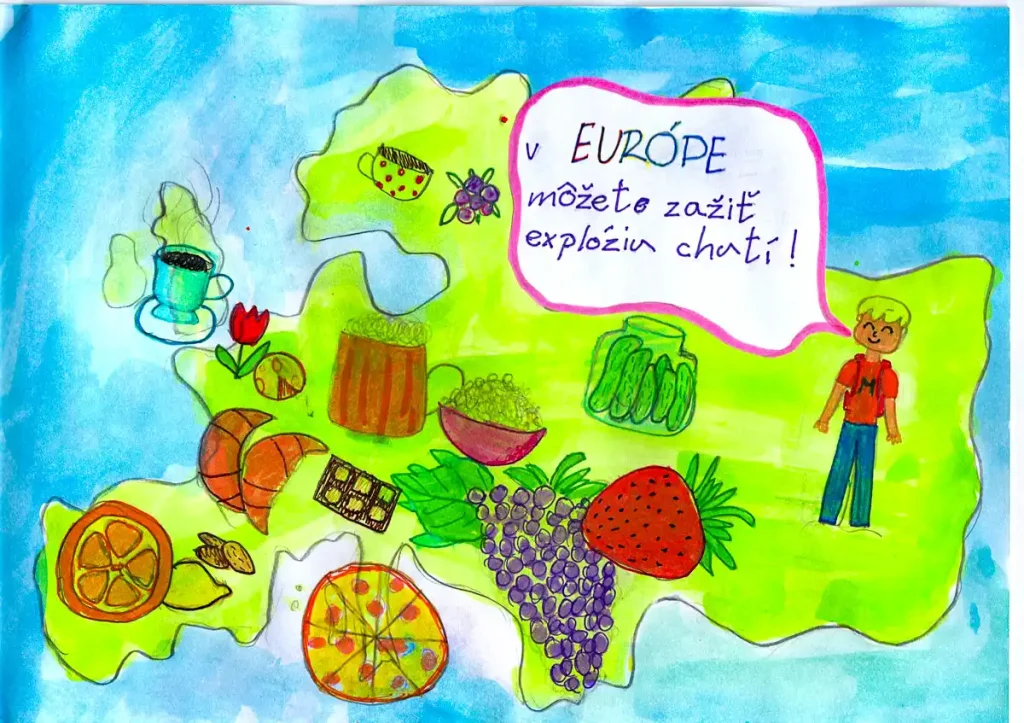 v EURÓPE
môžete zažiť
explóziu chutí!
M